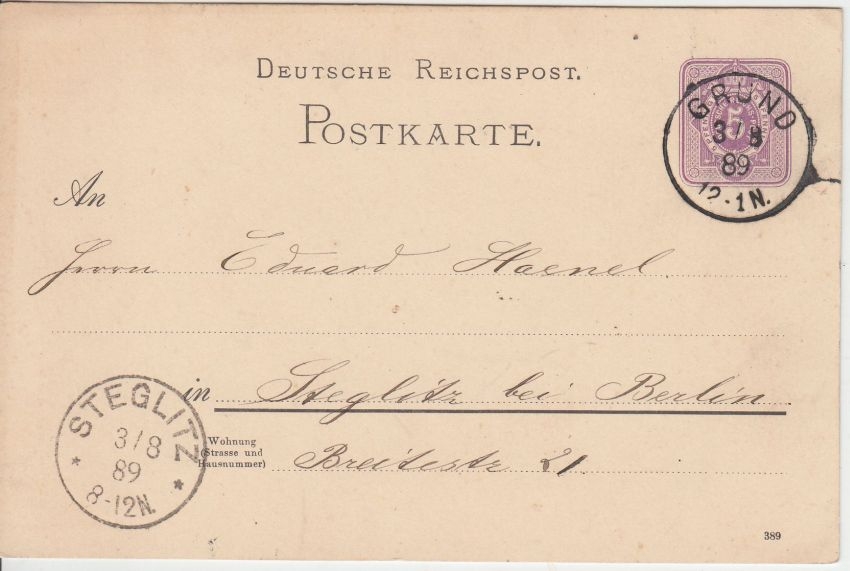 DEUTSCHE REICHSPOST.
POSTKARTE.
GRUND
3/8
89
12-1N.
5
An
Herrn Eduard Haenel
in Steglitz bei Berlin
Wohnung
(Strasse und
Hausnummer)
Breitestr 21
STEGLITZ
3/8
89
8-12N.
389